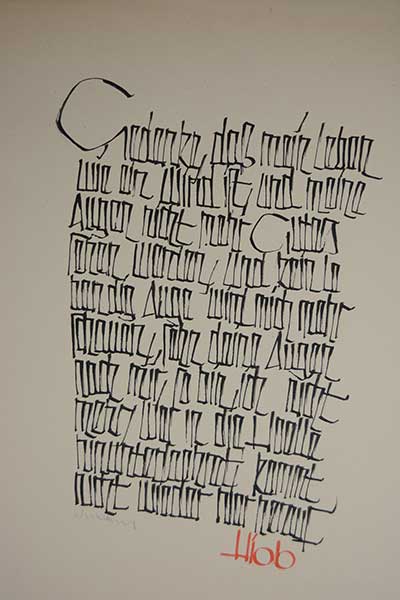 Gedenke, daß mein Leben
wie ein Wind ist und meine
Augen nicht mehr Gutes
sehen werden, und kein le
bendig Auge wird mich mehr
schauen, sehn deine Augen
nach mir, so bin ich nicht
mehr, wer in die Hoelle
hinunterfaehrt kommt
nicht wieder hier herauf
Hiob